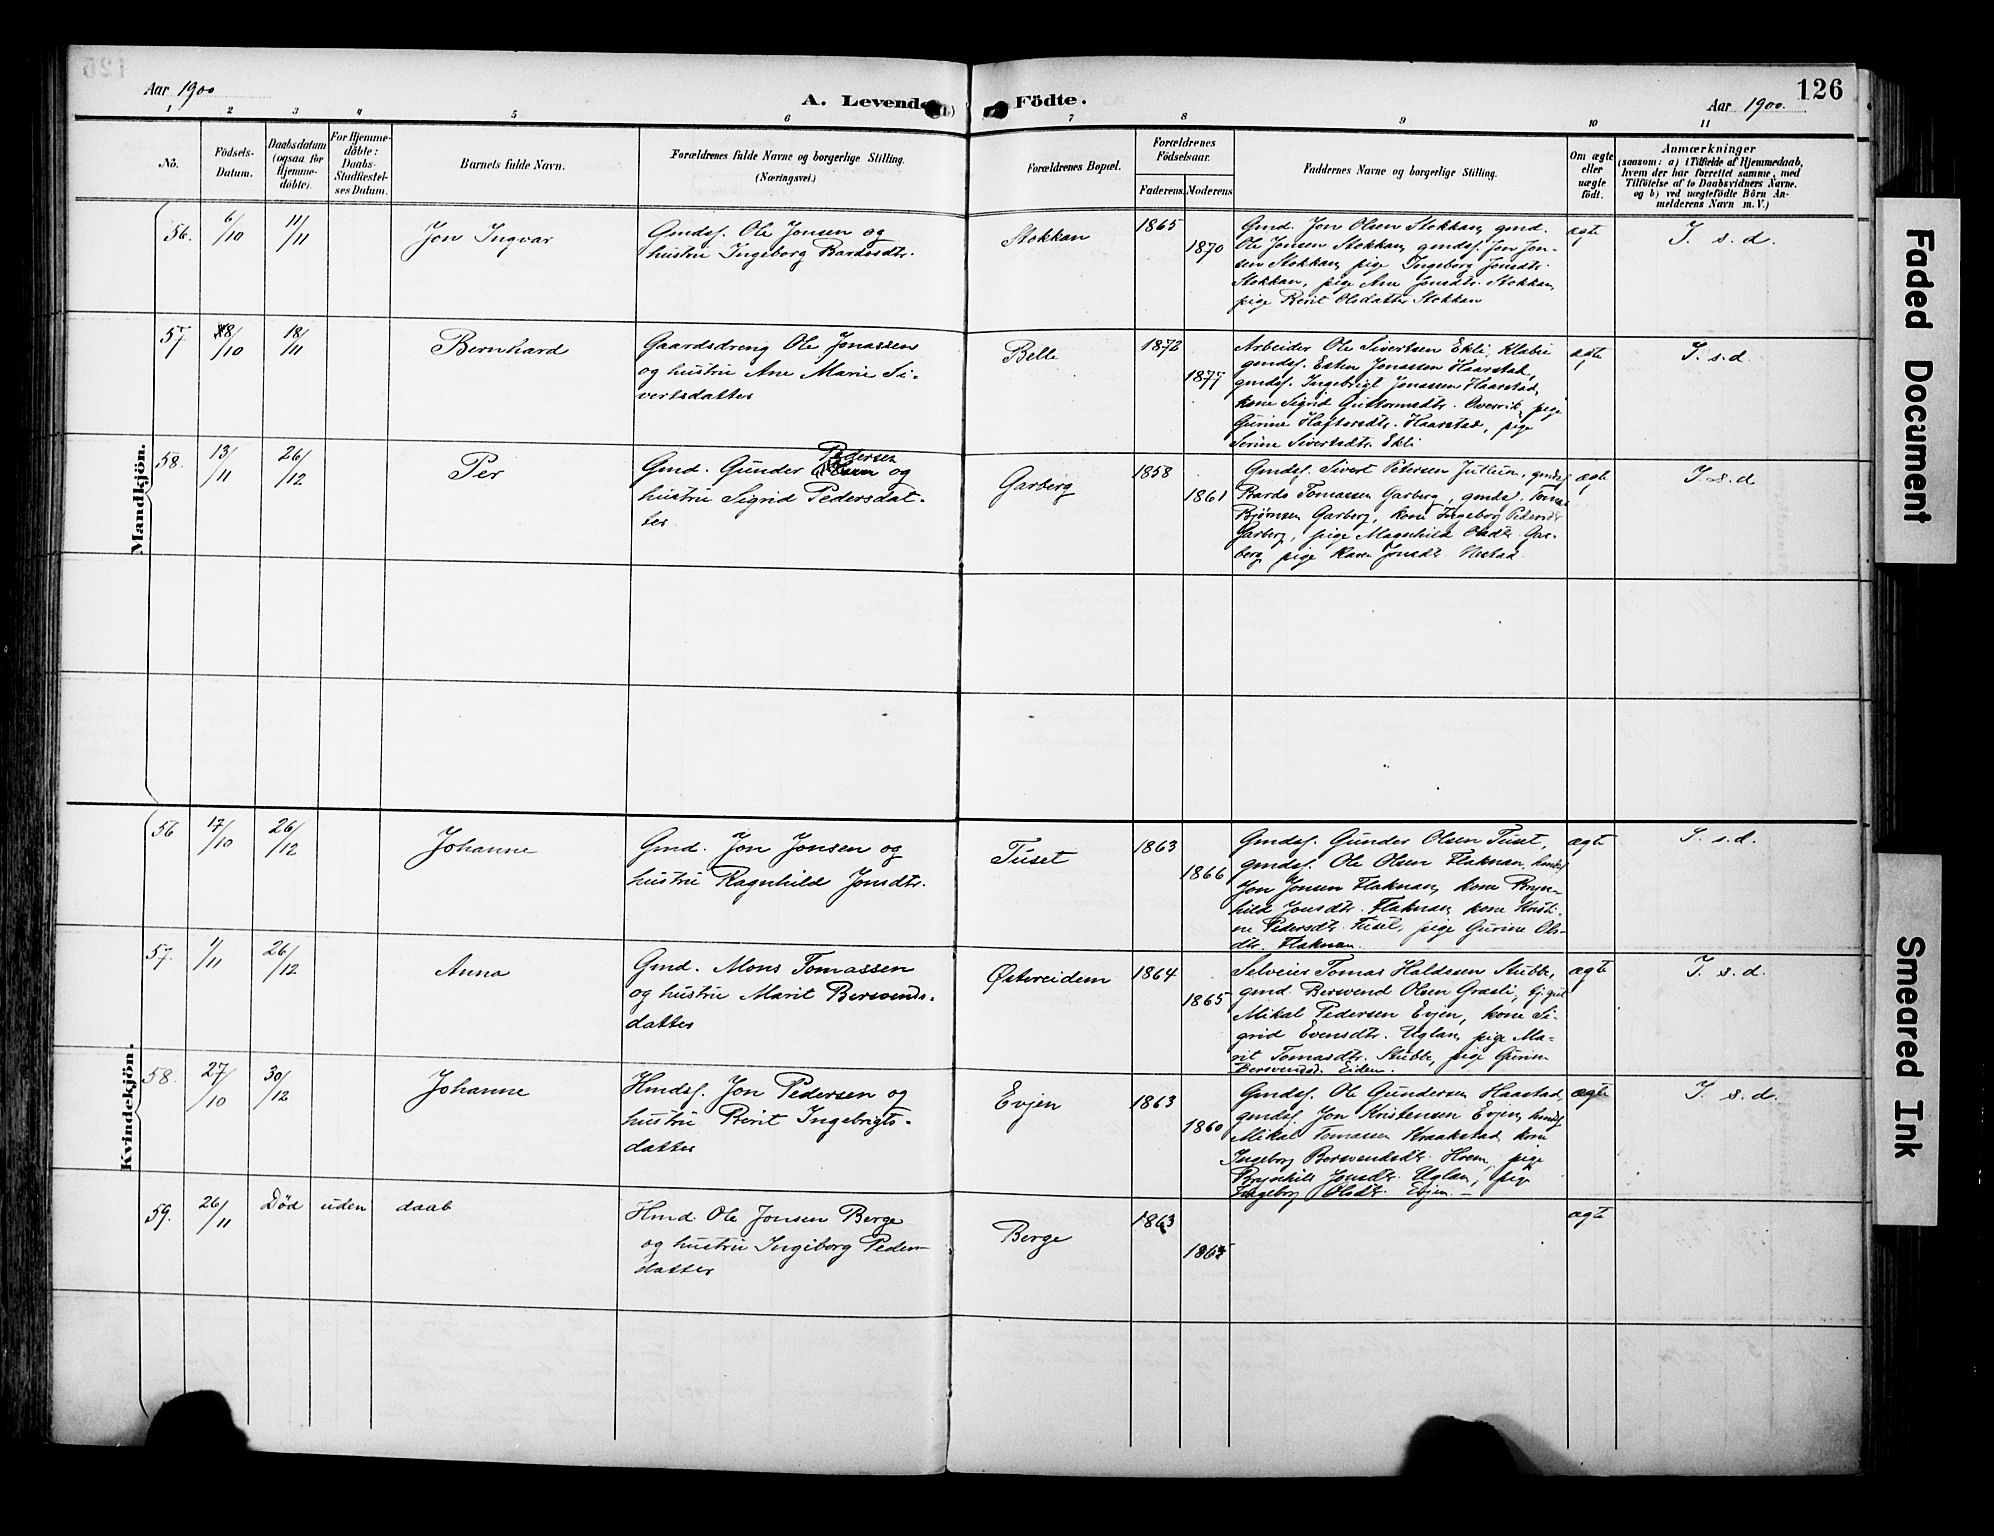 126
Aar 1900
A. Levende Födte.
Aar 1900.
1 2 3 4 5 6 7 8 9 10 11
No.
Födsels-
Datum.
Daabsdatum
(ogsaa for
Hjemme-
döbte).
For Hjemme-
döbte:
Daabs-
Stadfæstel-
ses Datum.
Barnets fulde Navn.
Forældrenes fulde Navne og borgerlige Stilling.
(Næringsvei.)
Forældrenes Bopæl.
Forældrenes
Födselsaar.
Faderens. Moderens.
Faddernes Navne og borgerlige Stilling.
Om ægte
eller
uægte
födt.
Anmærkninger
(saasom: a) i Tilfælde af Hjemmedaab,
hvem der har forrettet samme, med
Tilföielse af to Daabsvidners Navne,
og b) ved uægtefödte Börn An-
melderens Navn m. V.)
Mandkjön.
56. 6/10 11/11
Jon Ingvar
Gmdsf. Ole Jonsen og
hustru Ingeborg Bardosdtr.
Stokkan
1865
1870
Gmd. Jon Olsen Stokkan, gmd.
Ole Jonsen Stokkan, gmdsf. Jon Jon-
sen Stokkan, pige Ingeborg Jonsdtr.
Stokkan, pige Ane Jonsdtr. Stokkan,
pige Berit Olsdatter Stokkan
ægte
I. s. d.
57 8/10 18/11
Bernhard
Gaardsdreng Ole Jonassen
og hustru Ane Marie Si-
vertsdatter
Belle
1872
1877
Arbeider Ole Sivertsen Ekli, Klæbu
gmdsf. Esten Jonassen Haarstad,
gmdsf. Ingebrigt Jonassen Haarstad,
kone Sigrid Guttormsdtr. Overvik, pige
Gurine Haftorsdtr. Haarstad, pige
Serine Sivertsdtr. Ekli
ægte
I. s. d.
58. 13/11 26/12
Per
Pedersen
Gmd. Gunder Olsen og
hustru Sigrid Pedersdat-
ter
Garberg
1858
1861
Gmdsf. Sivert Petersen Jullum, gmdsf.
Bardo Tomassen Garberg, gmdsf. Tomas
Bjørnsen Garberg, kone Ingeborg Pedersdtr
Garberg, pige Magnhild Olsdtr. Gar-
berg, pige Karen Jonsdtr. Nestad.
ægte
I. s. d
Kvindekjön.
56 17/10 26/12
Johanne
Gmd. Jon Jonsen og
hustru Ragnhild Jonsdtr.
Tuset
1863
1866
Gmdsf. Gunder Olsen Tuset,
gmdsf. Ole Olsen Flaknan, hmdsf
Jon Jonsen Flaknan, kone Bryn-
hild Jonsdtr. Flaknan, kone Kristi-
ne Pedersdtr. Tuset, pige Gurine Ols-
dtr. Flaknan.
ægte
I. s. d.
57. 1/11 26/12
Anna
Gmd. Mons Tomassen
og hustru Marit Bersvends-
datter
Østereidem
1864
1865
Selveier Tomas Haldosen Stubbe,
gmd. Bersvend Olsen Græsli,
Mikal Pedersen Evjen, kone Si-
grid Evensdtr. Uglan, pige Ma-
rit Tomasdtr. Stubbe, pige Gurine
Bersvendsd. Eidem.
ægte
I. s. d.
58. 27/10 30/12
Johanne
Hmdsf. Jon Pedersen og
hustru Berit Ingebrigts-
datter
Evjen
1863
1860
Gmdsf. Ole Gundersen Haarstad
gmdsf. Jon Kristensen Evjen, hmdsf
Mikal Tomassen Kraakstad, kone
Ingeborg Bersvendsdtr. Hoem, pige
Brynhild Jonsdtr. Uglan, pige
Ingeborg Olsdtr. Evjen. –
ægte
I. s. d.
59. 26/11 Död uden daab
Hmd. Ole Jonsen Berge
og hustru Ingeborg Peders-
datter
Berge
1863
ægte
Faded Document
Smeared Ink